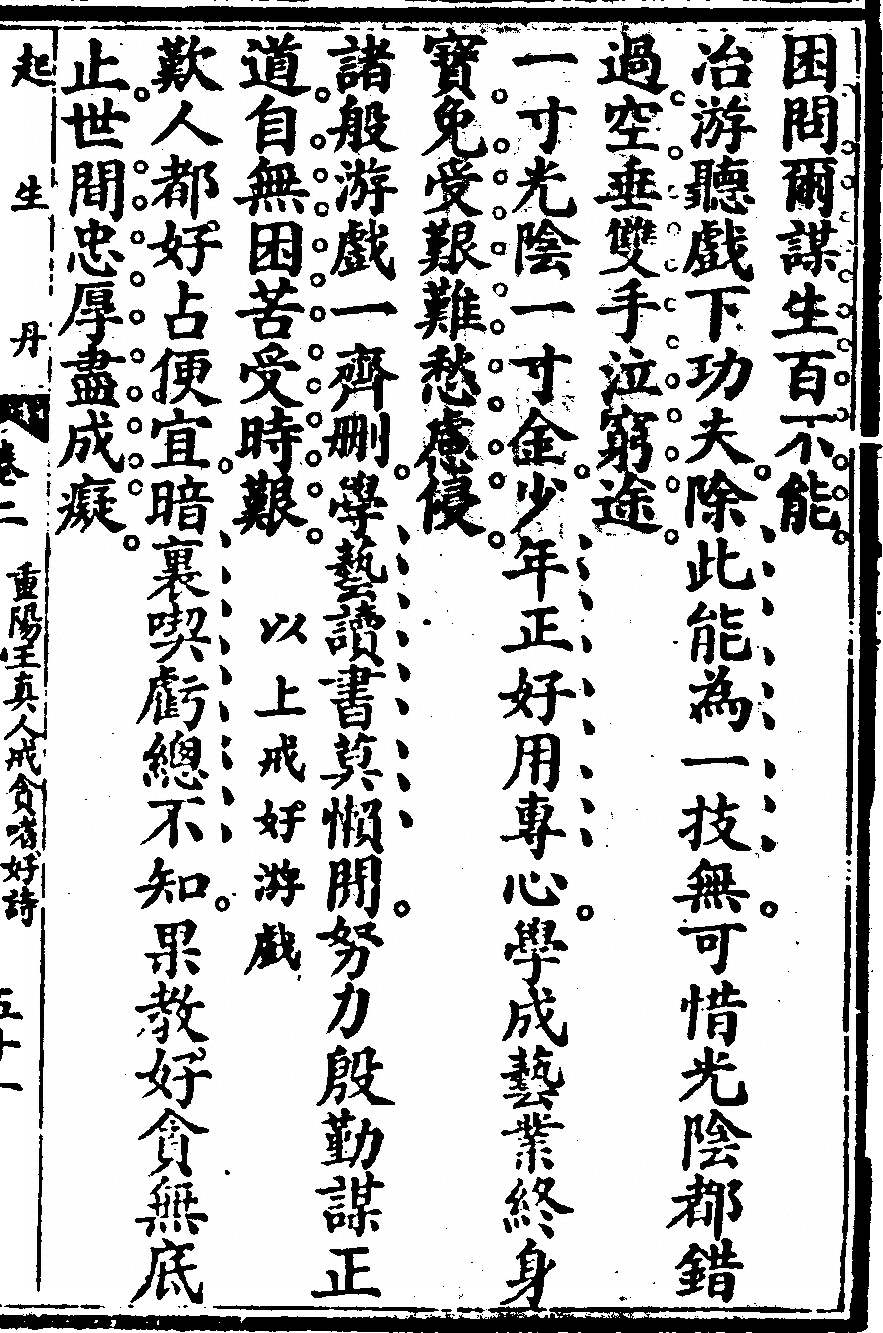 困問爾謀生百不能
冶游聽戲下功夫除此能為一技無可惜光陰都錯
過空垂雙手泣窮途
一寸光陰一寸金少年正好用專心學成藝業終身
寶免受艱難愁慮侵
諸般游戲一齊刪學藝讀書莫懶閒努力殷勤謀正
道自無困苦受時艱
以上戒好游戲
歎人都好占便宜暗裏喫虧總不知果教好貪無底
止世間忠厚盡成癡
起生丹
卷二
重陽王真人戒貪嗜好詩
五十一